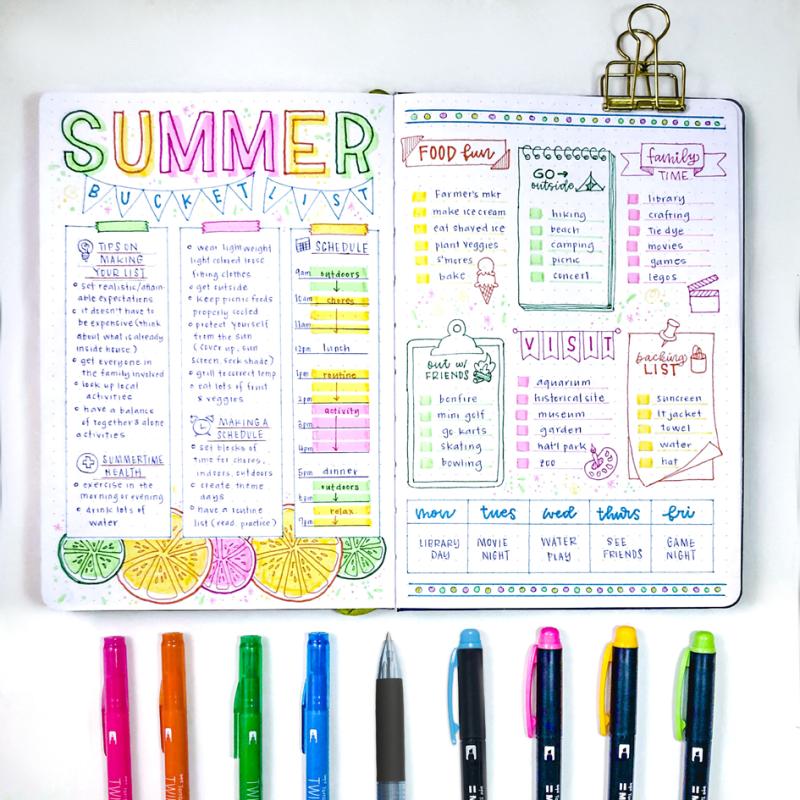 SUMMER
BUCKET LIST
TIPS ON
MAKING
YOUR LIST
set realistic/attain-
able expectations
it doesn't have to
be expensive (think
about what is already
inside house)
get everyone in
the family involved
look up local
activities
have a balance
of together & alone
activities
SUMMERTIME
HEALTH
exercise in the
morning or evening
drink lots of
water
wear lightweight
light colored loose
fitting clothes
get outside
keep picnic foods
properly cooled
protect yourself
from the sun
(cover up, sun
screen, seek shade)
grill to correct temp
eat lots of fruit
& veggies
MAKING A
SCHEDULE
set blocks of
time for chores,
indoors, outdoors
create theme
days
have a routine
list (read, practice)
SCHEDULE
9am outdoors
10am chores
11am
12pm lunch
1pm routine
2pm
activity
4pm
5pm dinner
outdoors
relax
9pm
FOOD fun
Farmer's mkt
make ice cream
eat shaved ice
plant veggies
s'mores
bake
GO→
outside
hiking
beach
camping
picnic
concert
family
TIME
library
crafting
Tie dye
movies
games
legos
out w/
FRIENDS
bonfire
mini golf
go karts
skating
bowling
VISIT
aquarium
historical site
museum
garden
nat'l park
zoo
packing
LIST
sunscreen
lt jacket
towel
water
hat
mon tues wed thurs fri
LIBRARY
DAY
MOVIE
NIGHT
WATER
PLAY
SEE
FRIENDS
GAME
NIGHT